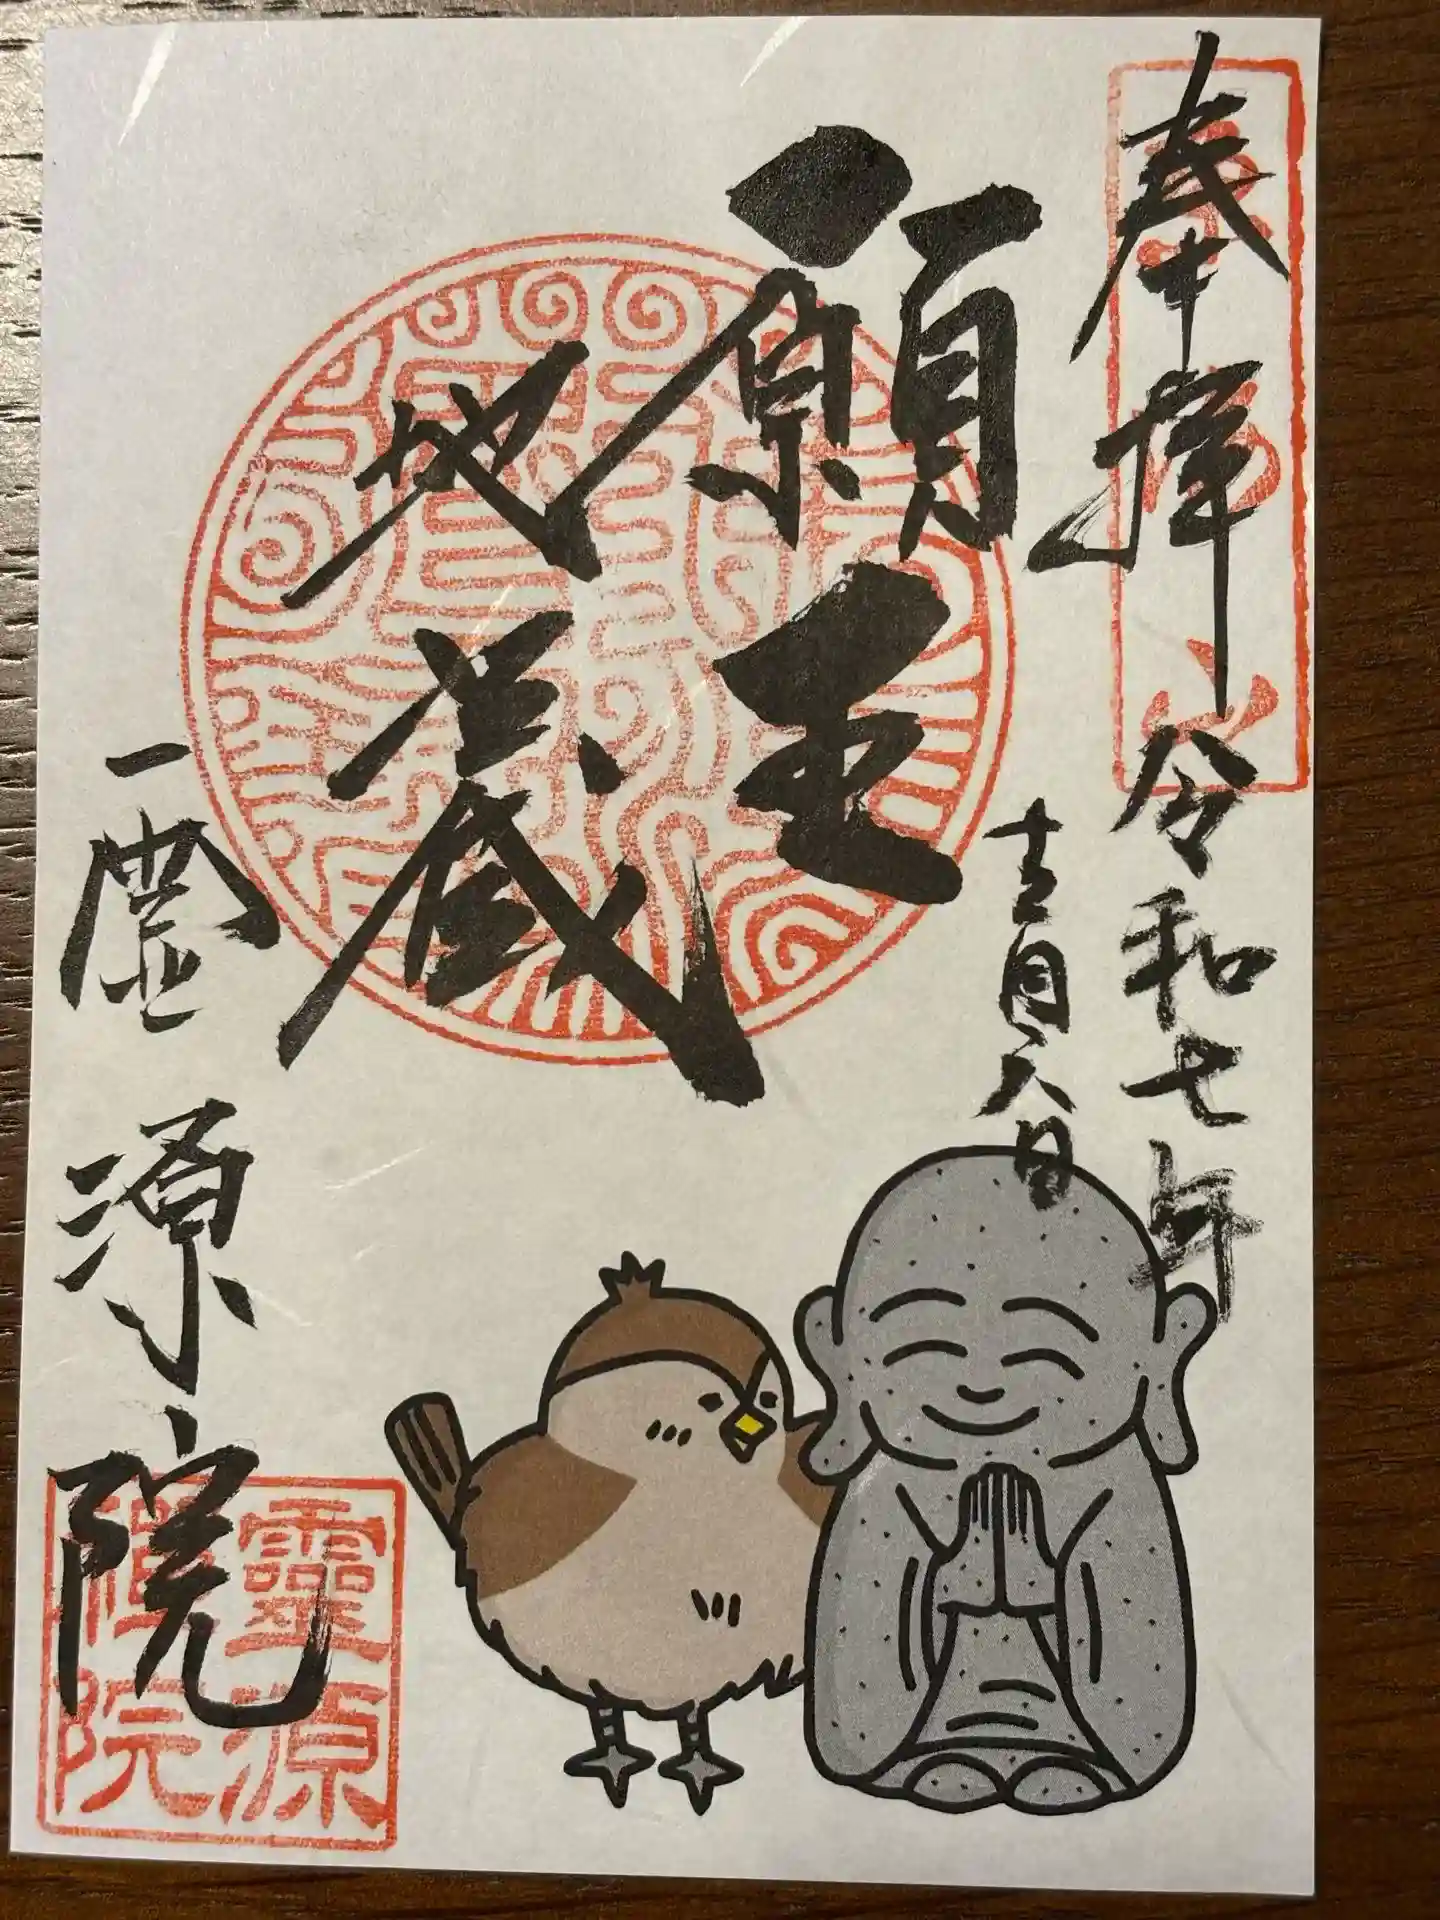 奉拝
令和七年
十二月
願王
地蔵
霊源院
靈源
禅院